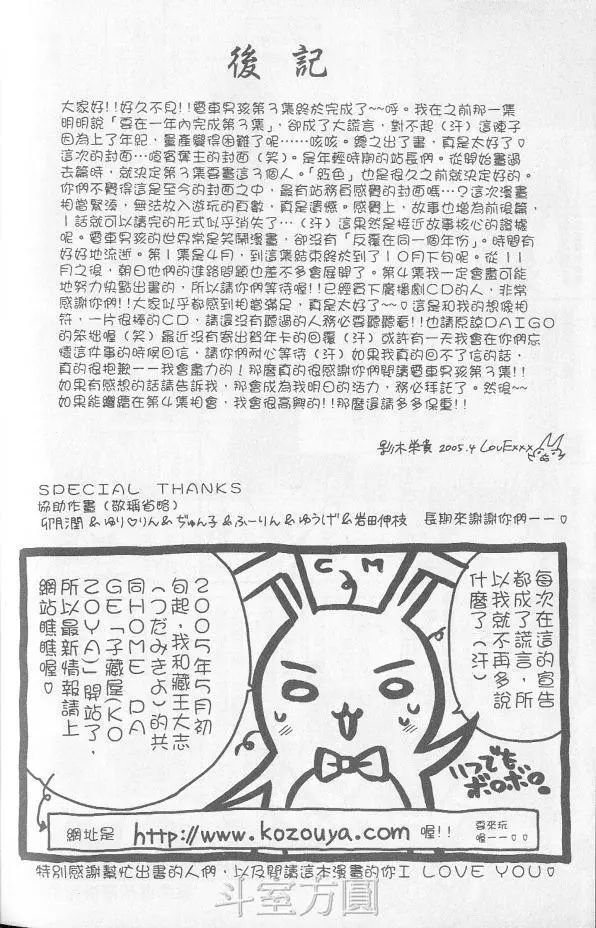 後記
大家好!!好久不見!!電車男孩第3集終於完成了~~呼。我在之前那一集
明明說「要在一年內完成第3集」,卻成了大謊言,對不起(汗)這陣子
因為上了年紀,量產變得困難了呢……咳咳。總之出了書,真是太好了♡
這次的封面…唔賓奪王的封面(笑)。是年輕時期的站長們。從開始畫過
去篇時,就決定第3集要畫這3個人。「眶色」也是很久之前就決定好的。
你們不覺得這是至今的封面之中,最有站務員感覺的封面嗎…?這次漫畫
相當緊湊,無法放入遊玩的頁數,真是遺憾。感覺上,故事也增為前後篇,
1話就可以講完的形式似乎消失了…(汗)這果然是接近故事核心的證據
呢。電車男孩的世界常是笑鬧漫畫,卻沒有「反覆在同一個年份」。時間有
好好地流逝。第1集是4月,到這集結束終於到了10月下旬呢。從11
月之後,朝日他們的進路問題也差不多會展開了。第4集我一定會盡可能
地努力快點出書的,所以請你們等待喔!!已經買下廣播劇CD的人,非常
感謝你們!!大家似乎都感到相當滿足,真是太好了~~♡這是和我的想像相
符,一片很棒的CD,請還沒有聽過的人務必要聽聽看!!也請原諒DAIGO
的笨拙喔(笑)最近沒有寄出賀年卡的回覆(汗)或許有一天我會在你們忘
懷這件事的時候回信,請你們耐心等待(汗)如果我真的回不了信的話,
真的很抱歉——我會盡力的!那麼真的很感謝你們閱讀電車男孩第3集!!
如果有感想的話請告訴我,那會成為我明日的活力,務必拜託了。然後~~
如果能繼續在第4集相會,我會很高興的!!那麼還請多多保重!!
影木栄貴 2005.4 LovExxx
SPECIAL THANKS
協助作畫(敬稱省略)
卯月潤&ゆり♡りん&ぢゅん子&ふーりん&ゆうげ&岩田伸枝 長期來謝謝你們ーー♡
每次在這的宣告
都成了謊言,所
以我就不再多說
什麼了(汗)
CM
2005年5月初
旬起,我和藏王大志
(つだみきよ)的共
同HOME PA
GE「子藏屋(KO
ZOUYA)開站了,
所以最新情報請上
網站瞧瞧喔♡
いつでも
ボロボロ。
網址是 http://www.kozouya.com 喔!! 要來玩
喔ーー♡♡
特別感謝幫忙出書的人們,以及閱讀這本漫畫的你I LOVE YOU♡
斗室方圓